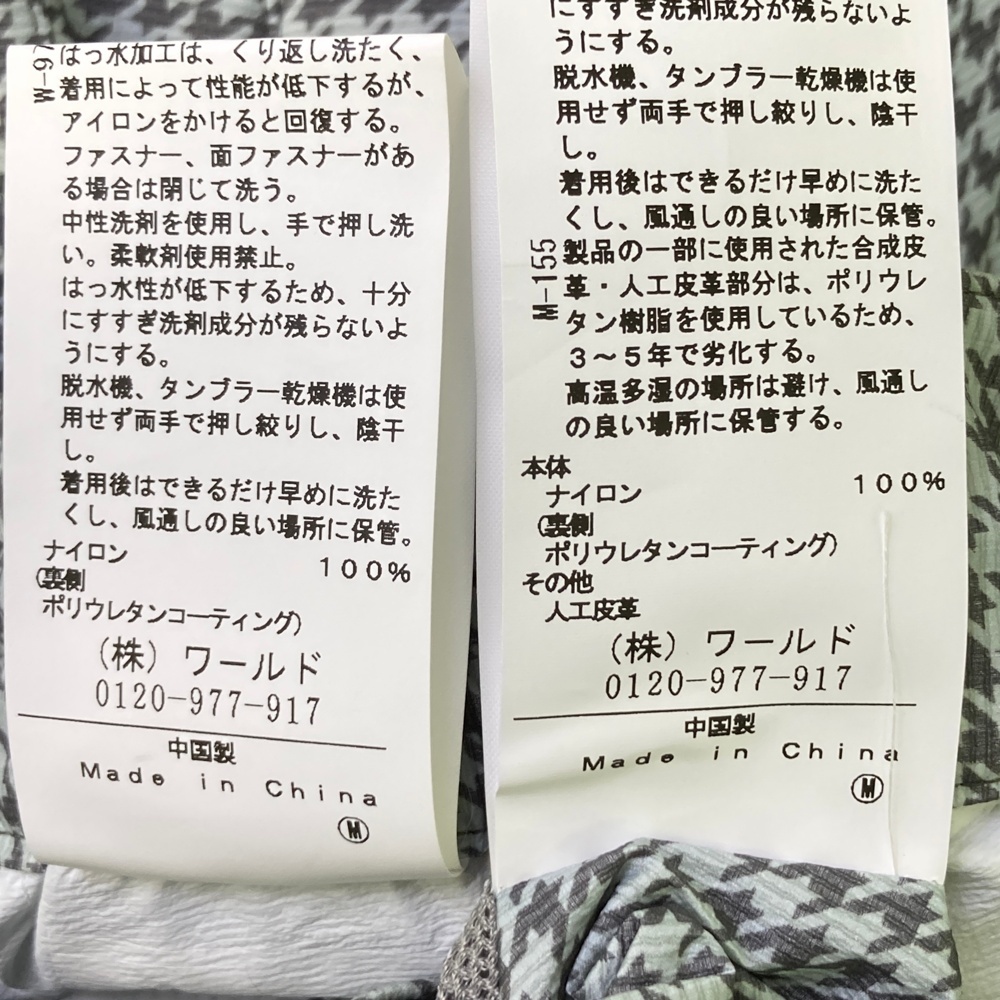 M-97
はっ水加工は、くり返し洗たく、
着用によって性能が低下するが、
アイロンをかけると回復する。
ファスナー、面ファスナーがあ
る場合は閉じて洗う。
中性洗剤を使用し、手で押し洗
い。柔軟剤使用禁止。
はっ水性が低下するため、十分
にすすぎ洗剤成分が残らないよ
うにする。
脱水機、タンブラー乾燥機は使
用せず両手で押し絞りし、陰干
し。
着用後はできるだけ早めに洗た
くし、風通しの良い場所に保管。
ナイロン 100%
(裏側
ポリウレタンコーティング)
(株) ワールド
0120-977-917
中国製
Made in China
M
にすすぎ洗剤成分が残らないよ
うにする。
脱水機、タンブラー乾燥機は使
用せず両手で押し絞りし、陰干
し。
着用後はできるだけ早めに洗た
くし、風通しの良い場所に保管。
M-155
製品の一部に使用された合成皮
革・人工皮革部分は、ポリウレ
タン樹脂を使用しているため、
3～5年で劣化する。
高温多湿の場所は避け、風通し
の良い場所に保管する。
本体
ナイロン 100%
(裏側
ポリウレタンコーティング)
その他
人工皮革
(株) ワールド
0120-977-917
中国製
Made in China
M